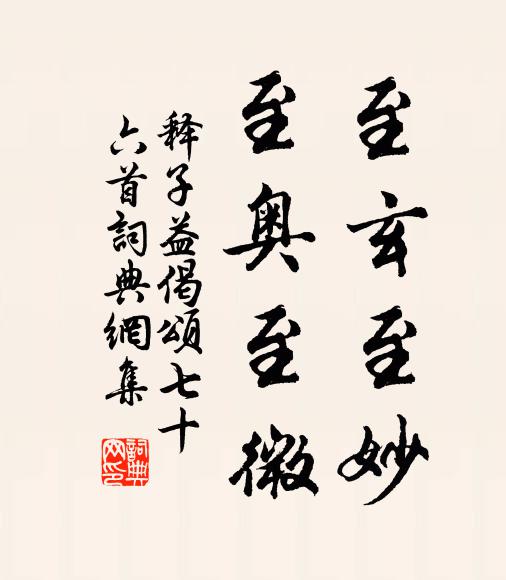 至玄至妙
至奥至微
释子益偈頌七十
六首詞典網集
詞典
网印